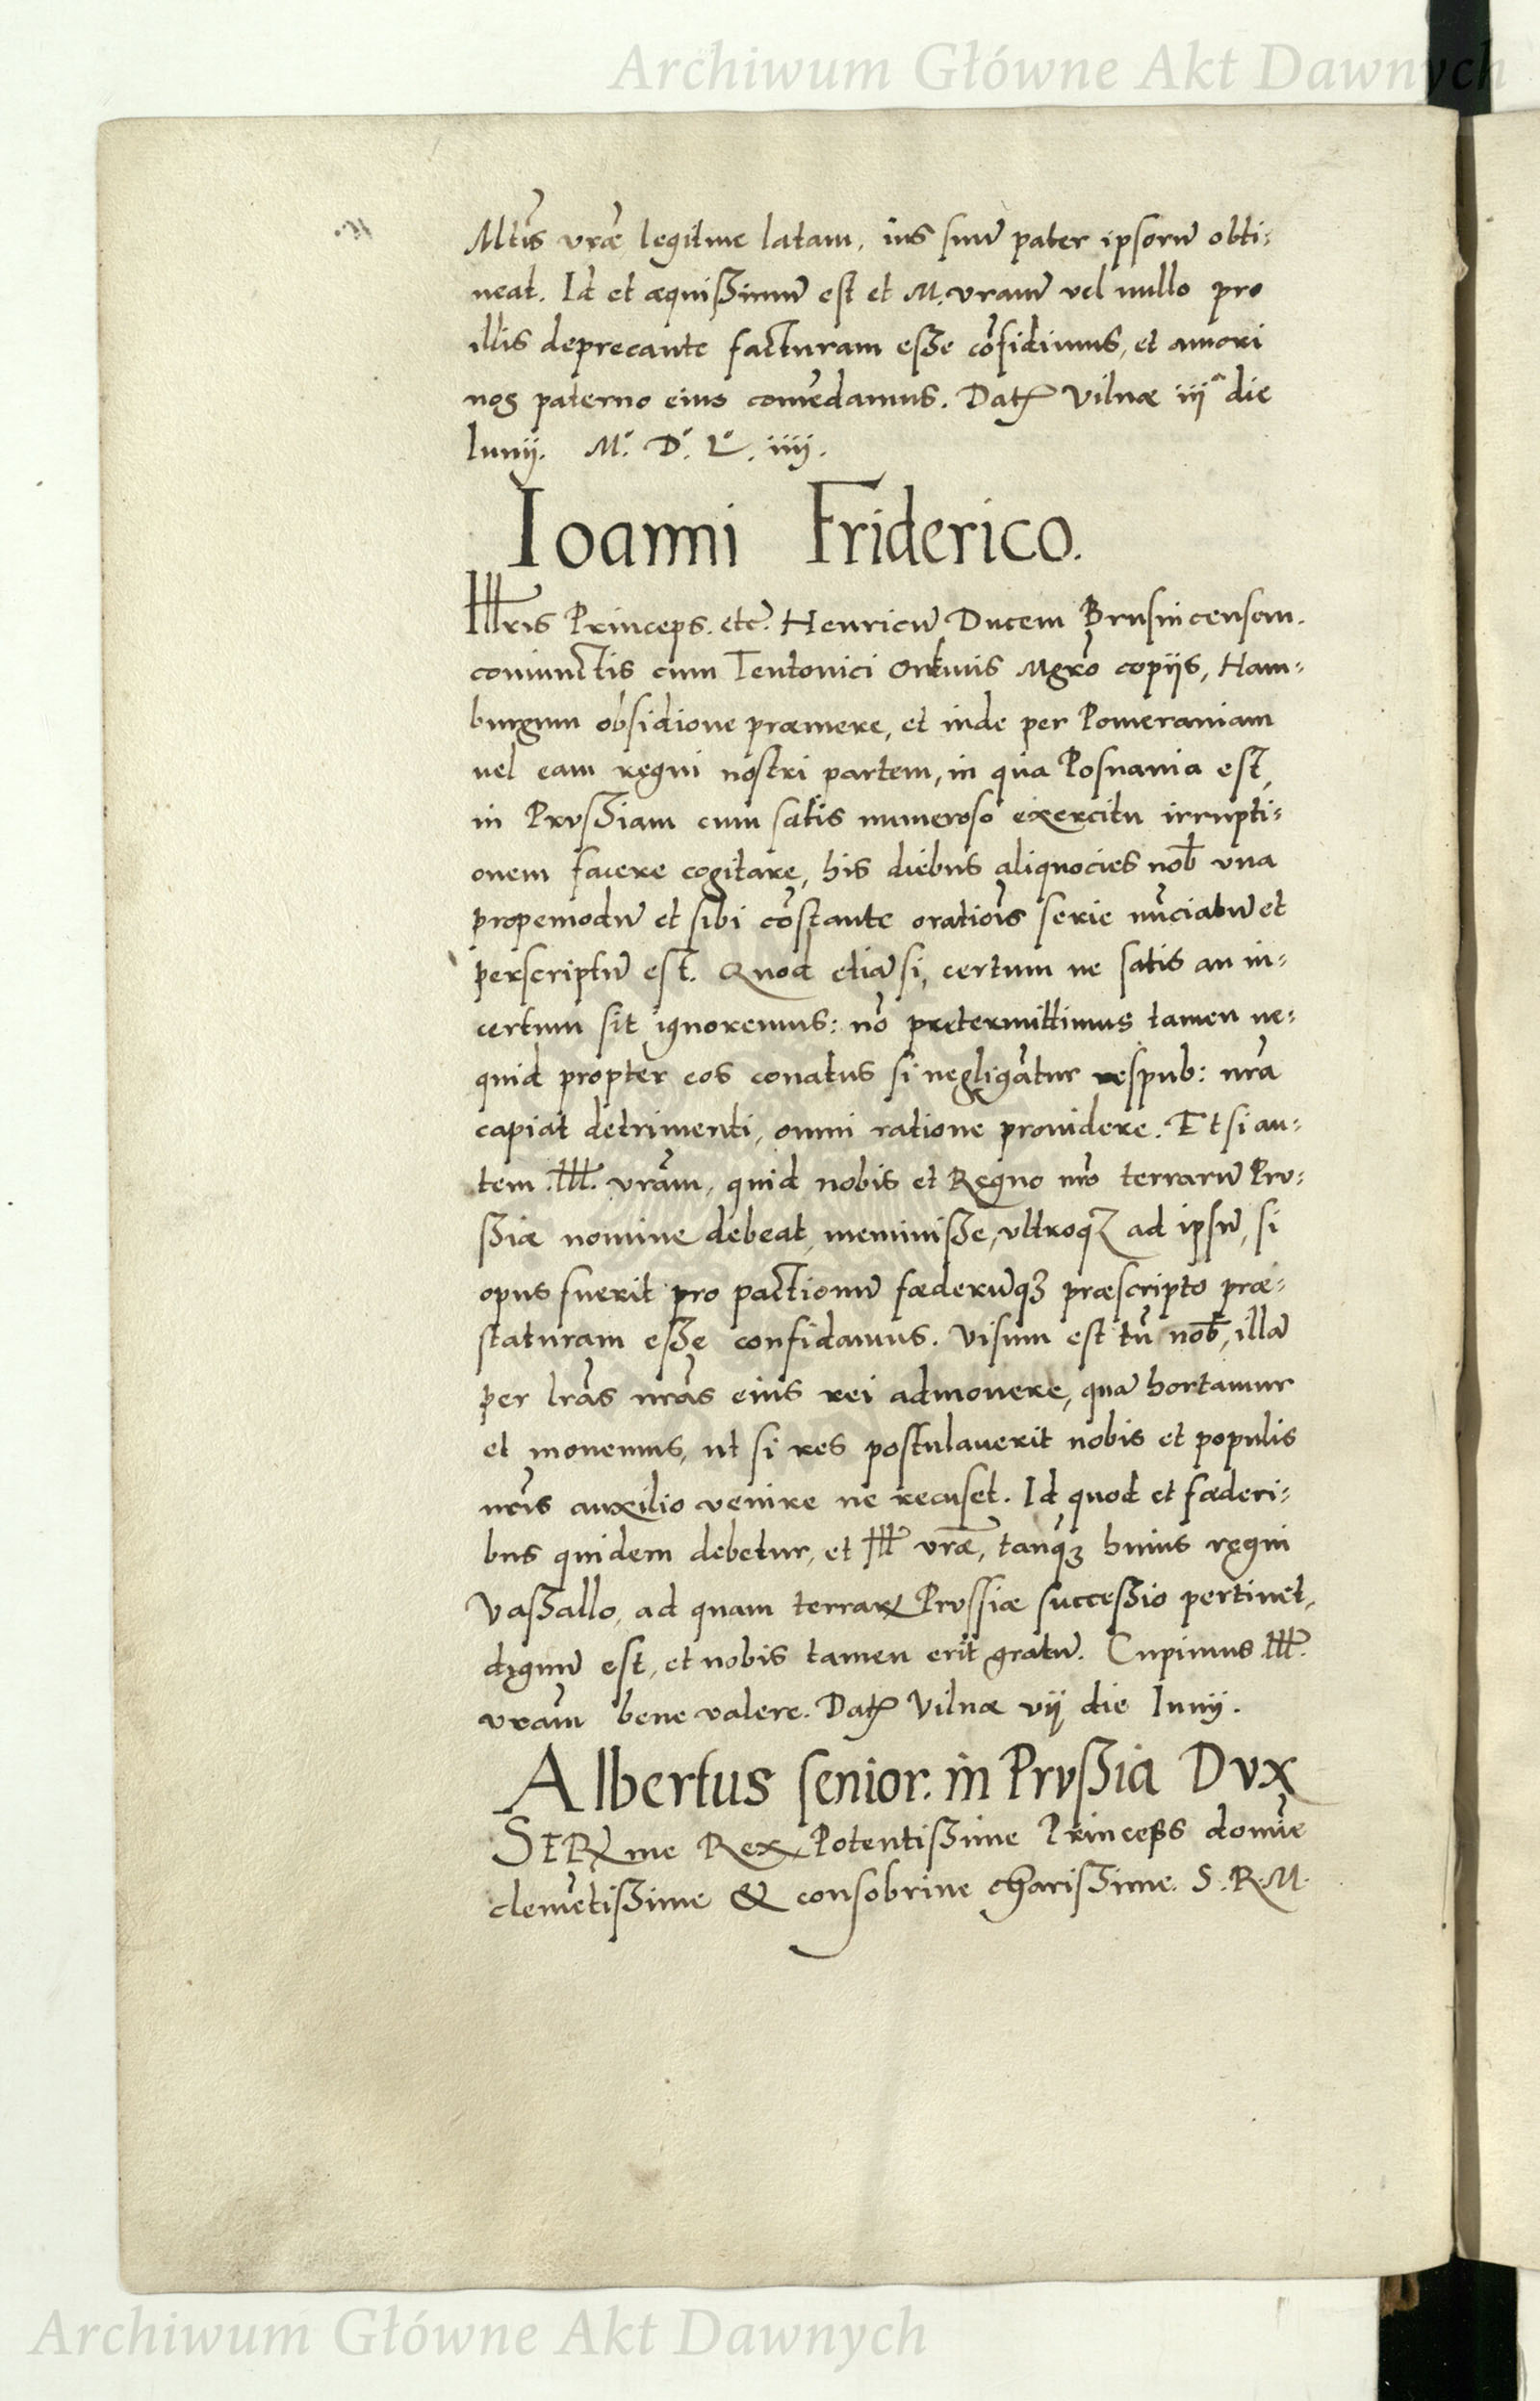 Archiwum Główne Akt Dawnych
Mtis̃ vrãe legitime latam, ius suũ pater ipsorũ obti-
neat. Id et æquissimũ est et M. vram̃ vel nullo pro
illis deprecante facturam esse cõfidimus, et amori
nos paterno eius comẽdamus. Datꝭ Vilnæ iij^a die
Iunij. M.° D.° L.° iiij.
Ioanni Friderico.
Illris Princeps. etc̃. Henricũ Ducem Brusuicensem.
coniunctis cum Teutonici Ordinis Mgrõ copijs, Ham-
burgum obsidione præmere, et inde per Pomeraniam
uel eam regni nostri partem, in qua Posnania est,
in Prussiam cum satis numeroso exercitu irrupti-
onem facere cogitare, his diebus aliquocies nob̃ vna
propemodũ et sibi cõstante oratiõis serie nũciatũ et
perscriptũ est. Quod etiã si, certum ne satis an in-
certum sit ignoremus: nõ pretermittimus tamen ne-
quid propter eos conatus si negligãtur respub: nrã
capiat detrimenti, omni ratione prouidere. Et si au-
tem .Ill. vrãm, quid nobis et Regno nrõ terrarũ Pru-
ssiæ nomine debeat, meminisse, vltroqꝫ ad ipsũ, si
opus fuerit pro pactionũ fæderũqꝫ præscripto præ-
staturam esse confidamus. Visum est tñ nob̃, illã
per lrãs nrãs eius rei admonere, quã hortamur
et monemus, ut si res postulauerit nobis et populis
nrĩs auxilio venire ne recuset. Id quod et fæderi-
bus quidem debetur, et Ill̃ vrãe, tanq̃ꝫ huius regni
Vassallo, ad quam terraꝝ Prussiæ successio pertinet,
dignũ est, et nobis tamen erit gratũ. Cupimus .Ill̃.
vrãm bene valere. Datꝭ Vilnæ vij die Iunij.
Albertus senior. in Prvssia Dvx
SERme Rex Potentissime Princeps domĩe
clemẽtissime & consobrine charissime. S. R. M.
Archiwum Główne Akt Dawnych